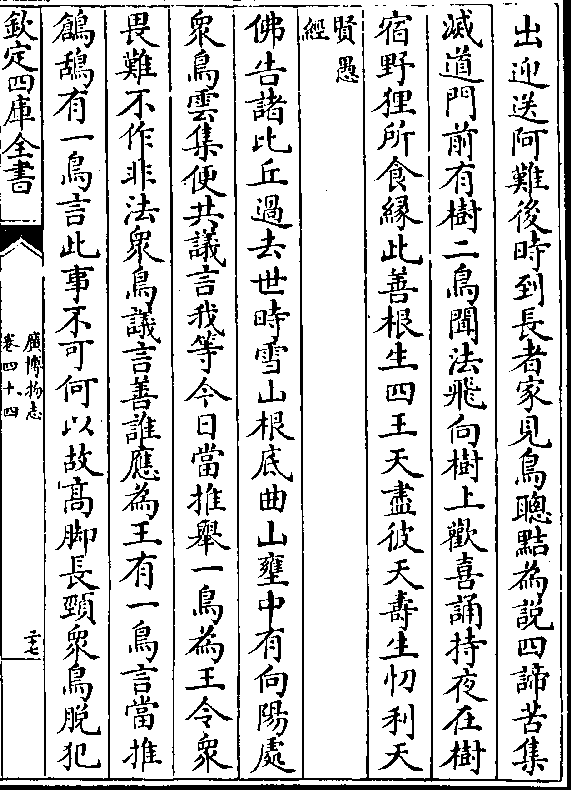 出迎送阿難後時到長者家見鳥聰黠為説四諦苦集
滅道門前有樹二鳥聞法飛向樹上歡喜誦持夜在樹
宿野狸所食緣此善根生四王天盡彼天壽生忉利天
賢愚
經
佛告諸比丘過去世時雪山根底曲山壅中有向陽處
衆鳥雲集便共議言我等今日當推舉一鳥為王令衆
畏難不作非法衆鳥議言善誰應為王有一鳥言當推
鶬鴰有一鳥言此事不可何以故高脚長頸衆鳥脱犯
欽定四庫全書
廣博物志
卷四十四
三十七